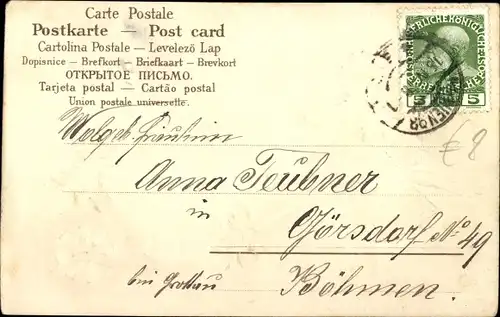 Carte Postale
Postkarte — Post card
Cartolina Postale — Levelező Lap
Dopisnice — Brefkort — Briefkaart — Brevkort
ОТКРЫТОЕ ПИСЬМО.
Tarjeta postal — Cartão postal
Union postale universelle.
5 5
Wolgeb. Fräulein
€8
Anna Teubner
in
Görsdorf No 49
bei Grottau
Böhmen.